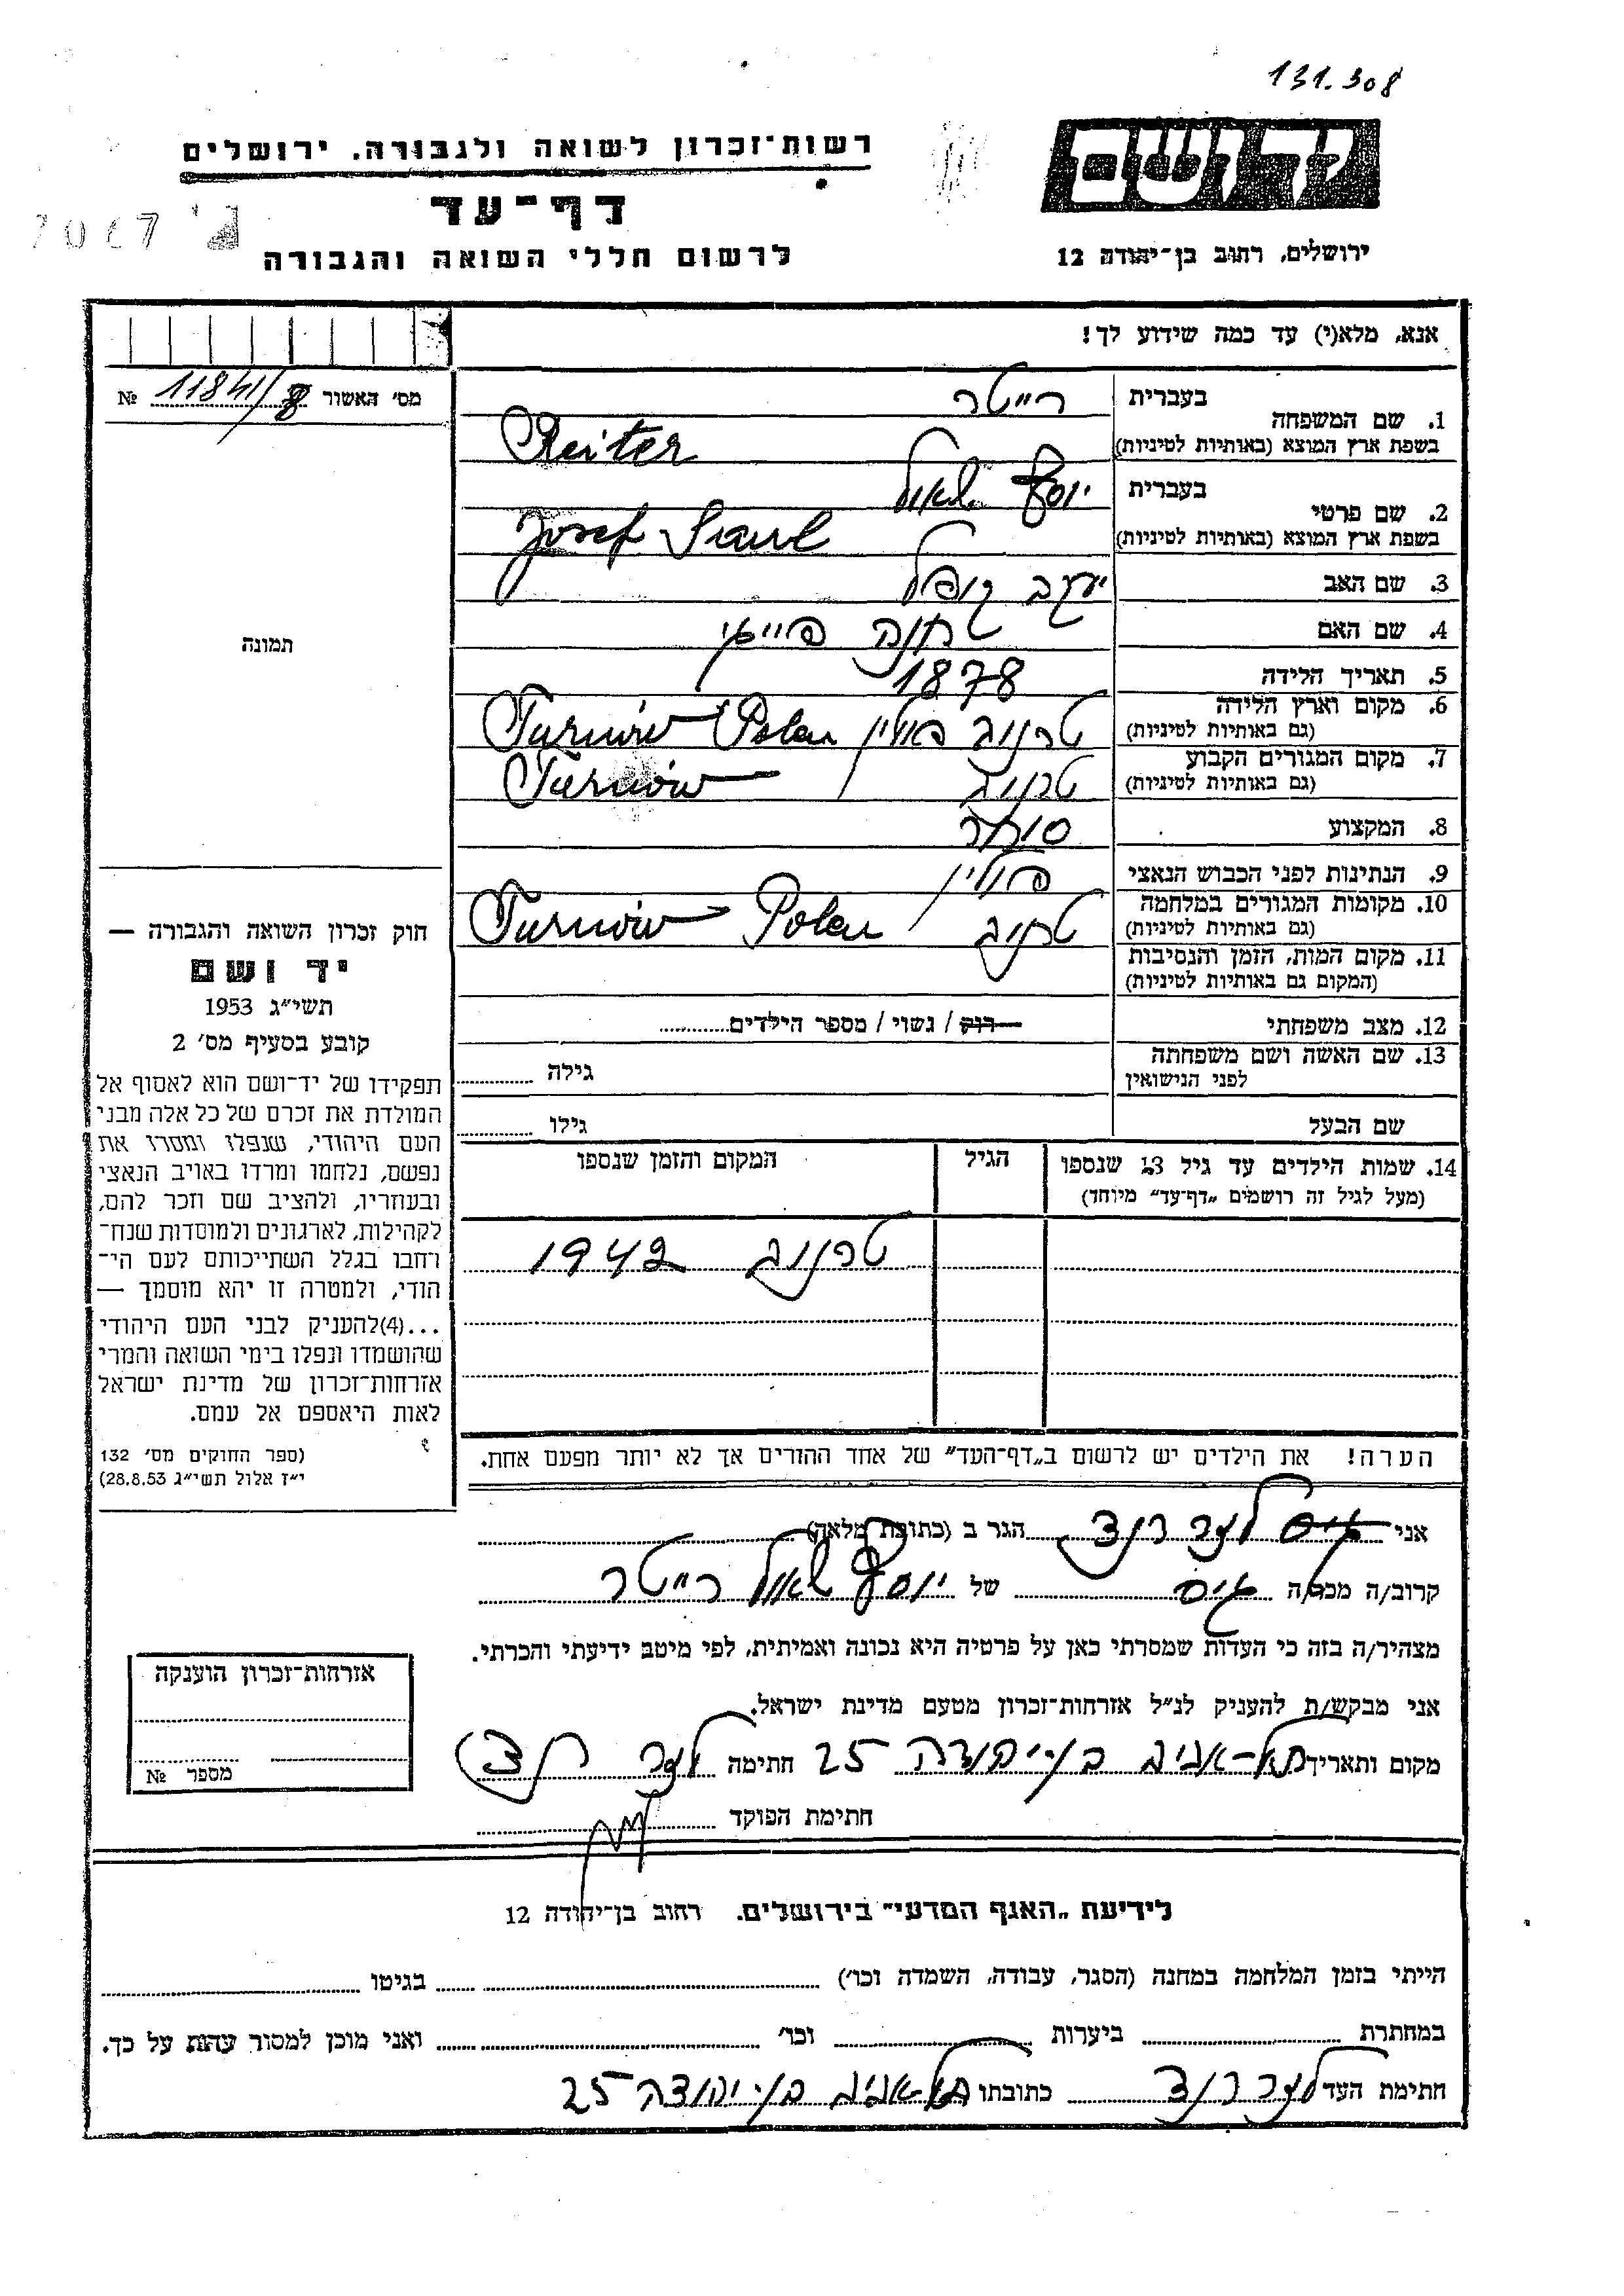 131.308
רשות־זכרון לשואה ולגבורה. ירושלים
ידושם
דף־עד
לרשום חללי השואה והגבורה
ירושלים, רחוב בן־יהודה 12
אנא, מלא(י) עד כמה שידוע לך!
מס׳ האשור 11841/8 №
תמונה
1. שם המשפחה
בעברית רייטר
בשפת ארץ המוצא (באותיות לטיניות) Reiter
2. שם פרטי
בעברית יוסף שאול
בשפת ארץ המוצא (באותיות לטיניות) Josef Saul
3. שם האב יעקב קופל
4. שם האם חנה פייגי
5. תאריך הלידה 1878
6. מקום וארץ הלידה טרנוב פולין Polen Turnów
(גם באותיות לטיניות)
7. מקום המגורים הקבוע טרנוב Turnów
(גם באותיות לטיניות)
8. המקצוע סוחר
9. הנתינות לפני הכבוש הנאצי פולין
10. מקומות המגורים במלחמה טרנוב Turnów Polen
(גם באותיות לטיניות)
11. מקום המות, הזמן והנסיבות
(המקום גם באותיות לטיניות)
12. מצב משפחתי רווק / נשוי / מספר הילדים
13. שם האשה ושם משפחתה
לפני הנישואין גילה
שם הבעל גילו
14. שמות הילדים עד גיל 13 שנספו הגיל המקום והזמן שנספו
(מעל לגיל זה רושמים „דף־עד״ מיוחד)
טרנוב 1942
הערה! את הילדים יש לרשום ב„דף־העד״ של אחד ההורים אך לא יותר מפעם אחת.
חוק זכרון השואה והגבורה —
יד ושם
תשי״ג 1953
קובע בסעיף מס׳ 2
תפקידו של יד־ושם הוא לאסוף אל
המולדת את זכרם של כל אלה מבני
העם היהודי, שנפלו ומסרו את
נפשם, נלחמו ומרדו באויב הנאצי
ובעוזריו, ולהציב שם וזכר להם,
לקהילות, לארגונים ולמוסדות שנח־
רחבו בגלל השתייכותם לעם הי־
הודי, ולמטרה זו יהא מוסמך —
...(4)להעניק לבני העם היהודי
שהושמדו ונפלו בימי השואה והמרי
אזרחות־זכרון של מדינת ישראל
לאות היאספם אל עמם.
(ספר החוקים מס׳ 132
י״ז אלול תשי״ג 28.8.53)
אני הגר ב (כתובת מלאה)
קרוב/ה מכר/ה גיס של יוסף שאול רייטר
מצהיר/ה בזה כי העדות שמסרתי כאן על פרטיה היא נכונה ואמיתית, לפי מיטב ידיעתי והכרתי.
אני מבקש/ת להעניק לנ״ל אזרחות־זכרון מטעם מדינת ישראל.
מקום ותאריך תל-אביב בן-יהודה 25 חתימה
חתימת הפוקד
אזרחות־זכרון הוענקה
מספר №
לידיעת „האגף המדעי״ בירושלים. רחוב בן־יהודה 12
הייתי בזמן המלחמה במחנה (הסגר, עבודה, השמדה וכו׳) בגיטו
במחתרת ביערות וכו׳ ואני מוכן למסור עדות על כך.
חתימת העד כתובתו תל-אביב בן-יהודה 25